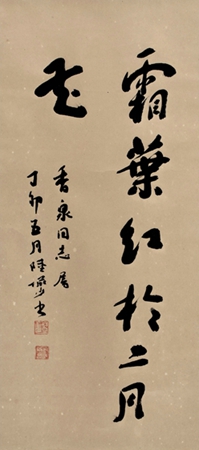 霜葉紅於二月
花
香泉同志属
丁卯五月陸儼少书